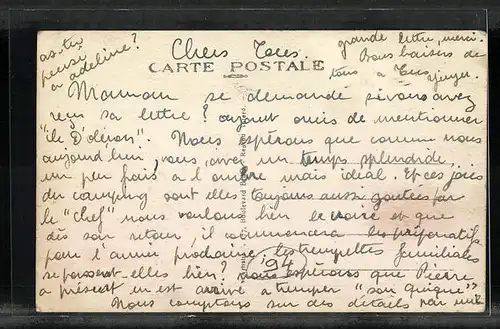 as-tu
pensé
a adeline?
grande lettre, merci.
Bons baisers de
tous a Tous
Chers Tous.
CARTE POSTALE
Maman se demande si vous avez
reçu sa lettre? ayant omis de mentionner
"ile D'oléron". Nous espérons que comme nous
aujourd'hui, vous avez un temps splendide
un peu frais a l'ombre mais idéal. Et ces joies
du camping sont elles toujours aussi goutées par
le "chef" nous voulons bien le croire et que
dès son retour, il commencera les préparatifs
pour l'année prochaine. les trempettes familiales
se passent-elles bien? Nous espérons que Pierre
a présent en est arrivé a tremper "son quique"
Nous comptons sur des détails par une
194
Boulevard